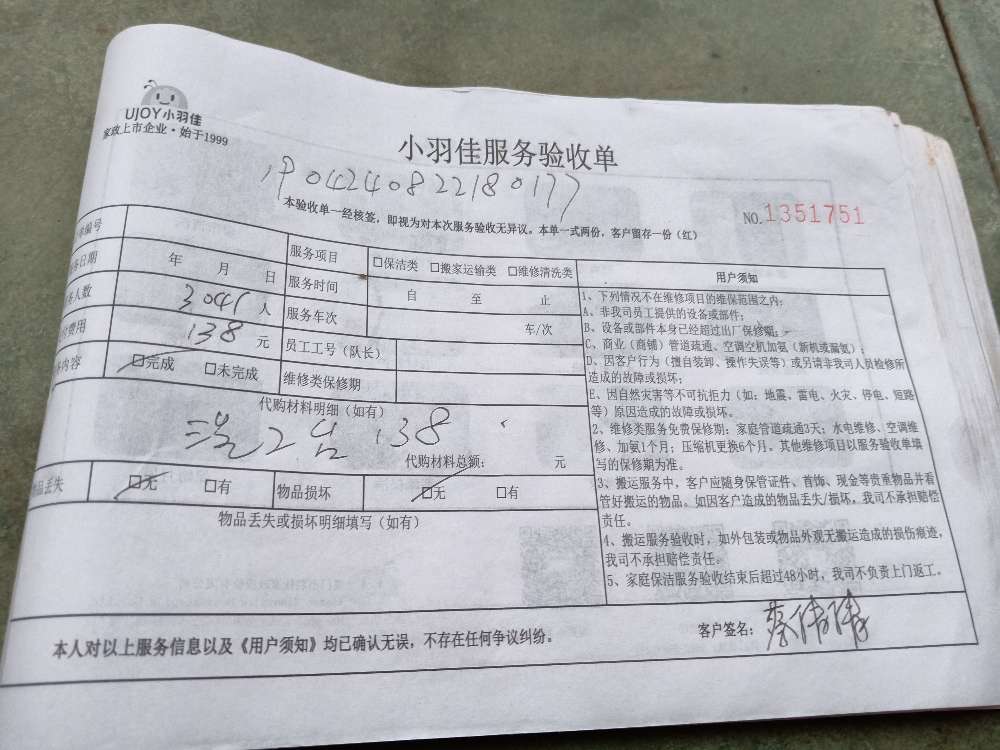 UJOY小羽佳
家政上市企业·始于1999
小羽佳服务验收单
04240822180177
本验收单一经核签，即视为对本次服务验收无异议。本单一式两份，客户留存一份（红）
NO.1351751
编号
服务项目 □保洁类 □搬家运输类 □维修清洗类
用户须知
日期 年 月 日
服务时间 自 至 止
人数 3041 人
服务车次 车/次
费用 138 元
员工工号（队长）
内容 □完成 □未完成
维修类保修期
代购材料明细（如有）
138
代购材料总额： 元
物品丢失 □无 □有
物品损坏 □无 □有
物品丢失或损坏明细填写（如有）
1、下列情况不在维修项目的维保范围之内：
A、非我司员工提供的设备或部件；
B、设备或部件本身已经超过出厂保修期；
C、商业（商铺）管道疏通、空调空机加氨（新机或漏氨）；
D、因客户行为（擅自装卸、操作失误等）或另请非我司人员检修所
造成的故障或损坏；
E、因自然灾害等不可抗拒力（如：地震、雷电、火灾、停电、短路
等）原因造成的故障或损坏。
2、维修类服务免费保修期：家庭管道疏通3天；水电维修、空调维
修、加氨1个月；压缩机更换6个月。其他维修项目以服务验收单填
写的保修期为准。
3、搬运服务中，客户应随身保管证件、首饰、现金等贵重物品并看
管好搬运的物品。如因客户造成的物品丢失/损坏，我司不承担赔偿
责任。
4、搬运服务验收时，如外包装或物品外观无搬运造成的损伤痕迹，
我司不承担赔偿责任。
5、家庭保洁服务验收结束后超过48小时，我司不负责上门返工。
本人对以上服务信息以及《用户须知》均已确认无误，不存在任何争议纠纷。
客户签名：蔡伟伟